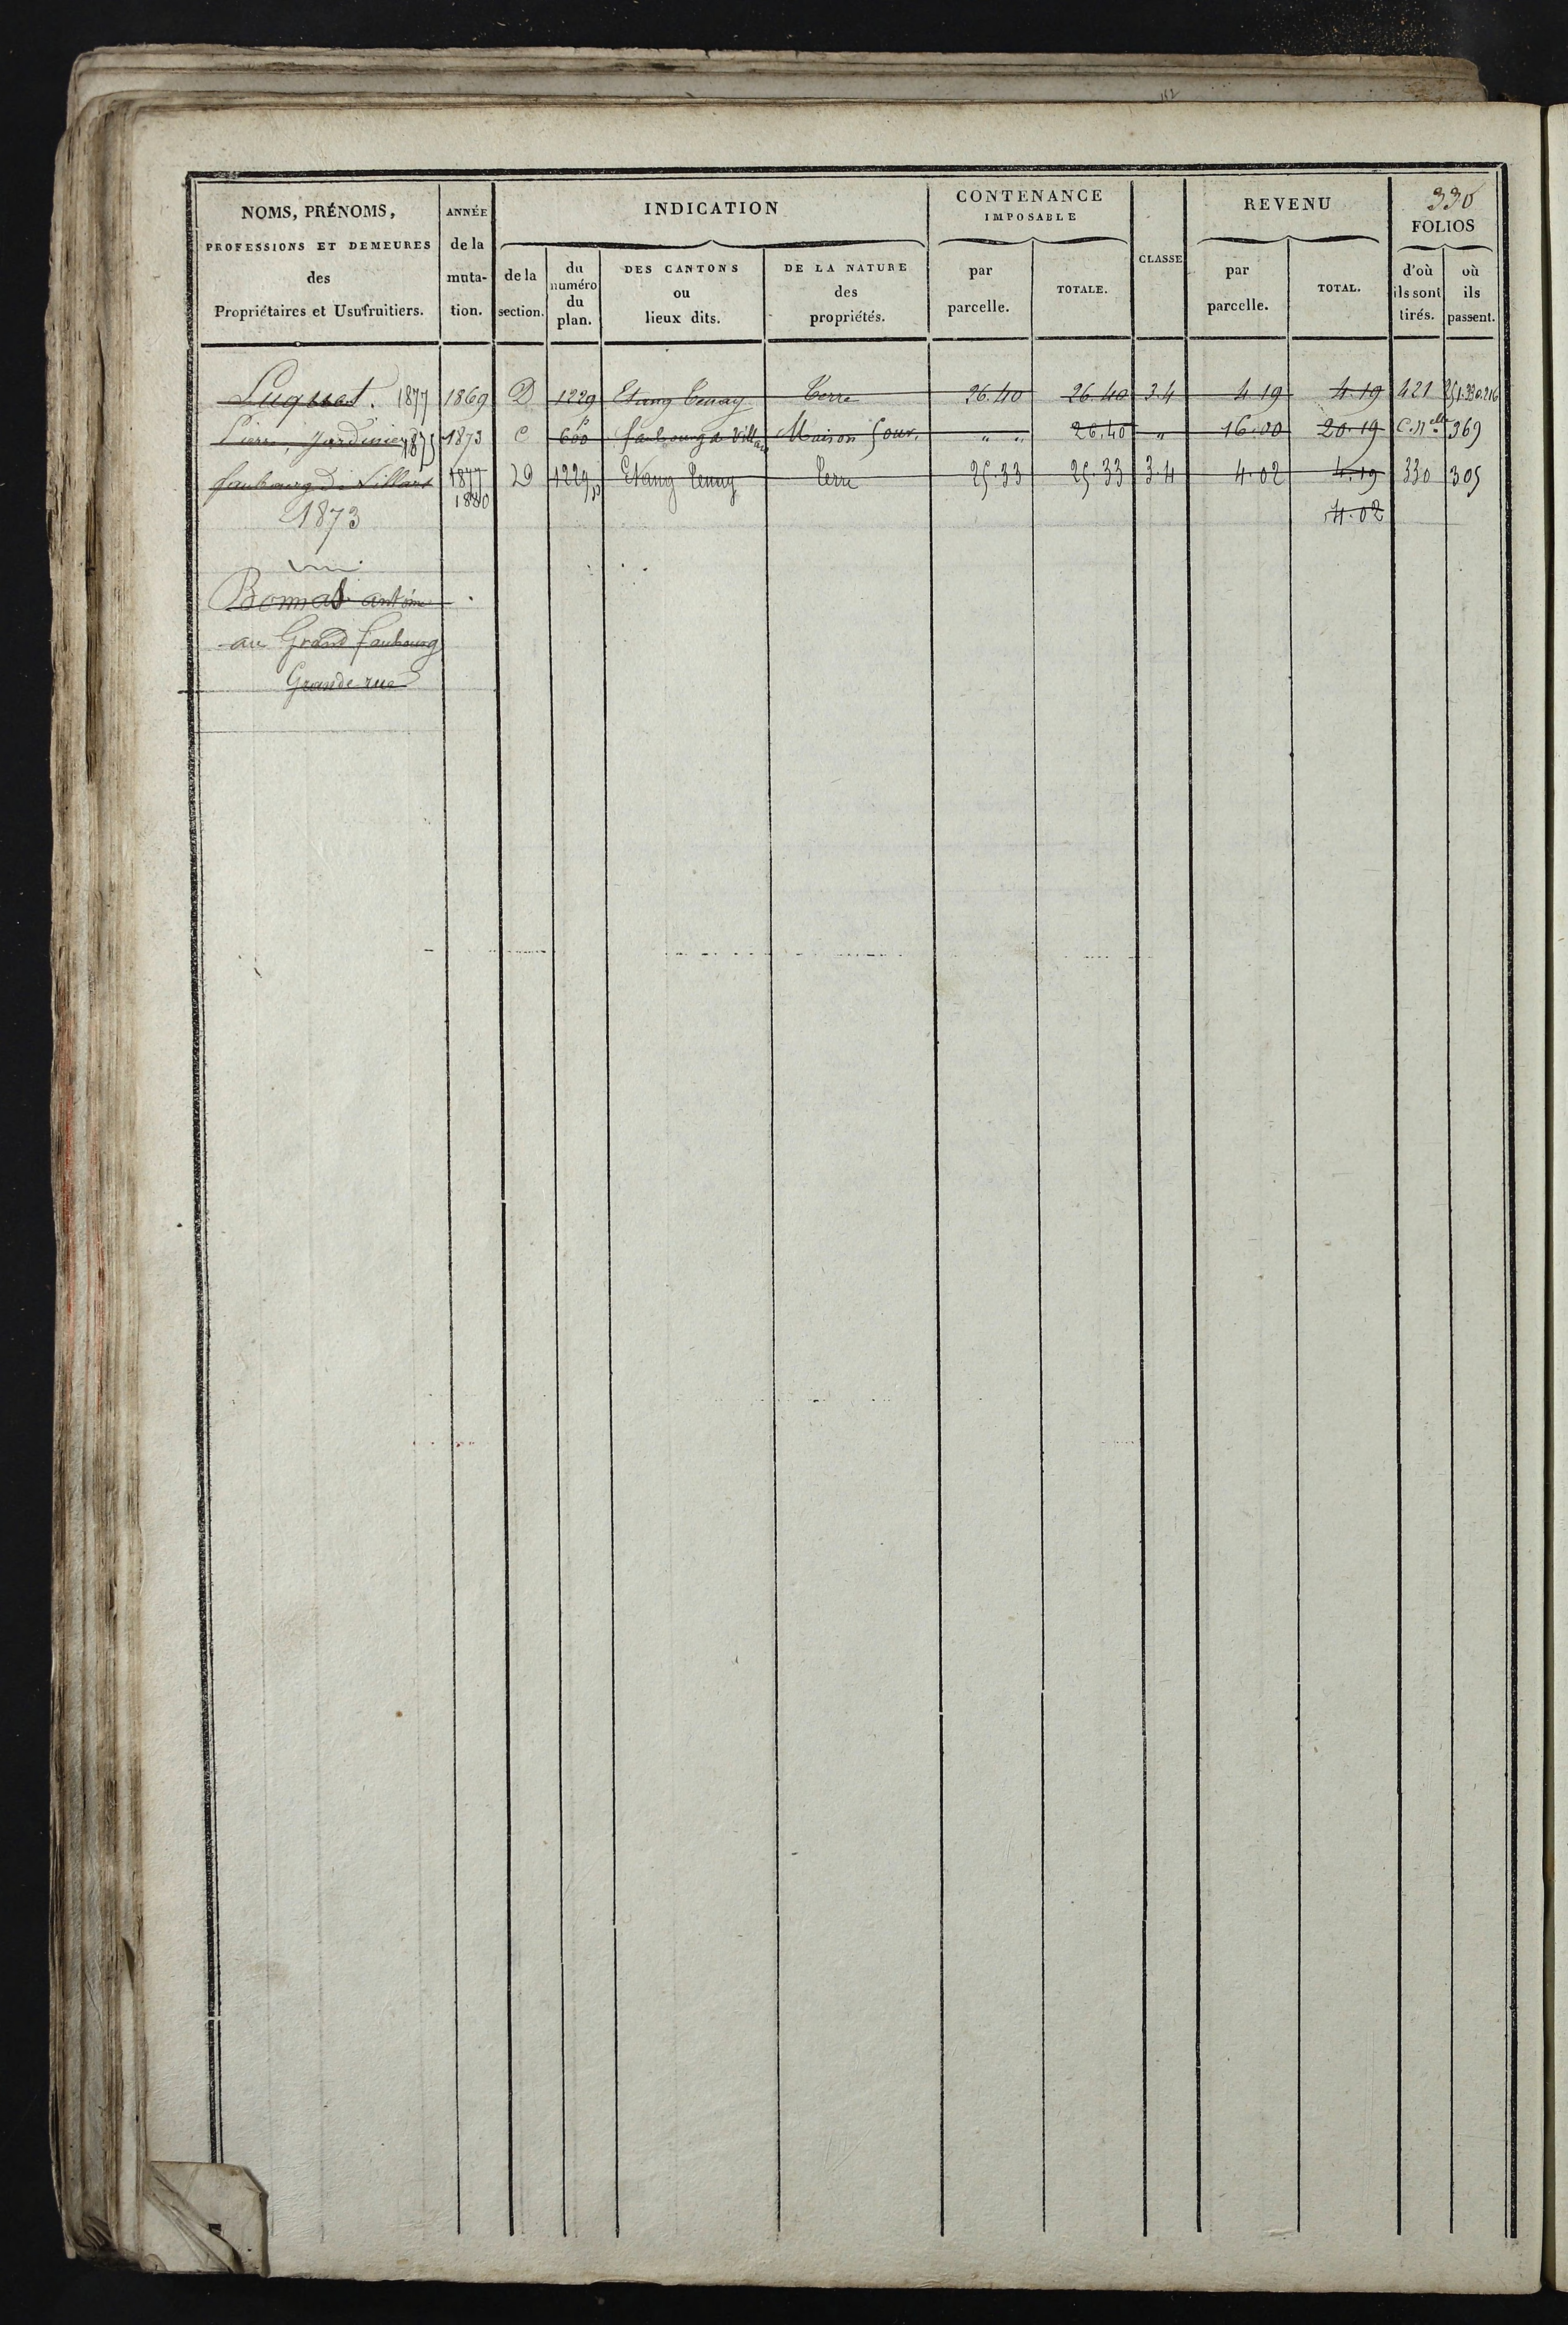 330
NOMS, PRÉNOMS, PROFESSIONS ET DEMEURES des Propriétaires et Usufruitiers.
ANNÉE de la muta- tion.
INDICATION
de la section.
du numéro du plan.
DES CANTONS ou lieux dits.
DE LA NATURE des propriétés.
CONTENANCE IMPOSABLE
par parcelle.
TOTALE.
CLASSE
REVENU
par parcelle.
TOTAL.
FOLIOS
d'où ils sont tirés.
où ils passent.
Luquet. 1877 1869 D 1229 Etang Terre 26.40 26.40 3.4 4.19 4.19 421
Pierre, Jardinier 1875 1873 C 600 faubourg de Villars Maison " " 26.40 " 16.00 20.19 C. Nelle 369
faubourg de Villars 1877 D 1229 Etang Terre 25.33 25.33 3.4 4.02 4.19 330 305
1873 1880 4.02
Bonnat antoine
au Grand faubourg
Grande rue